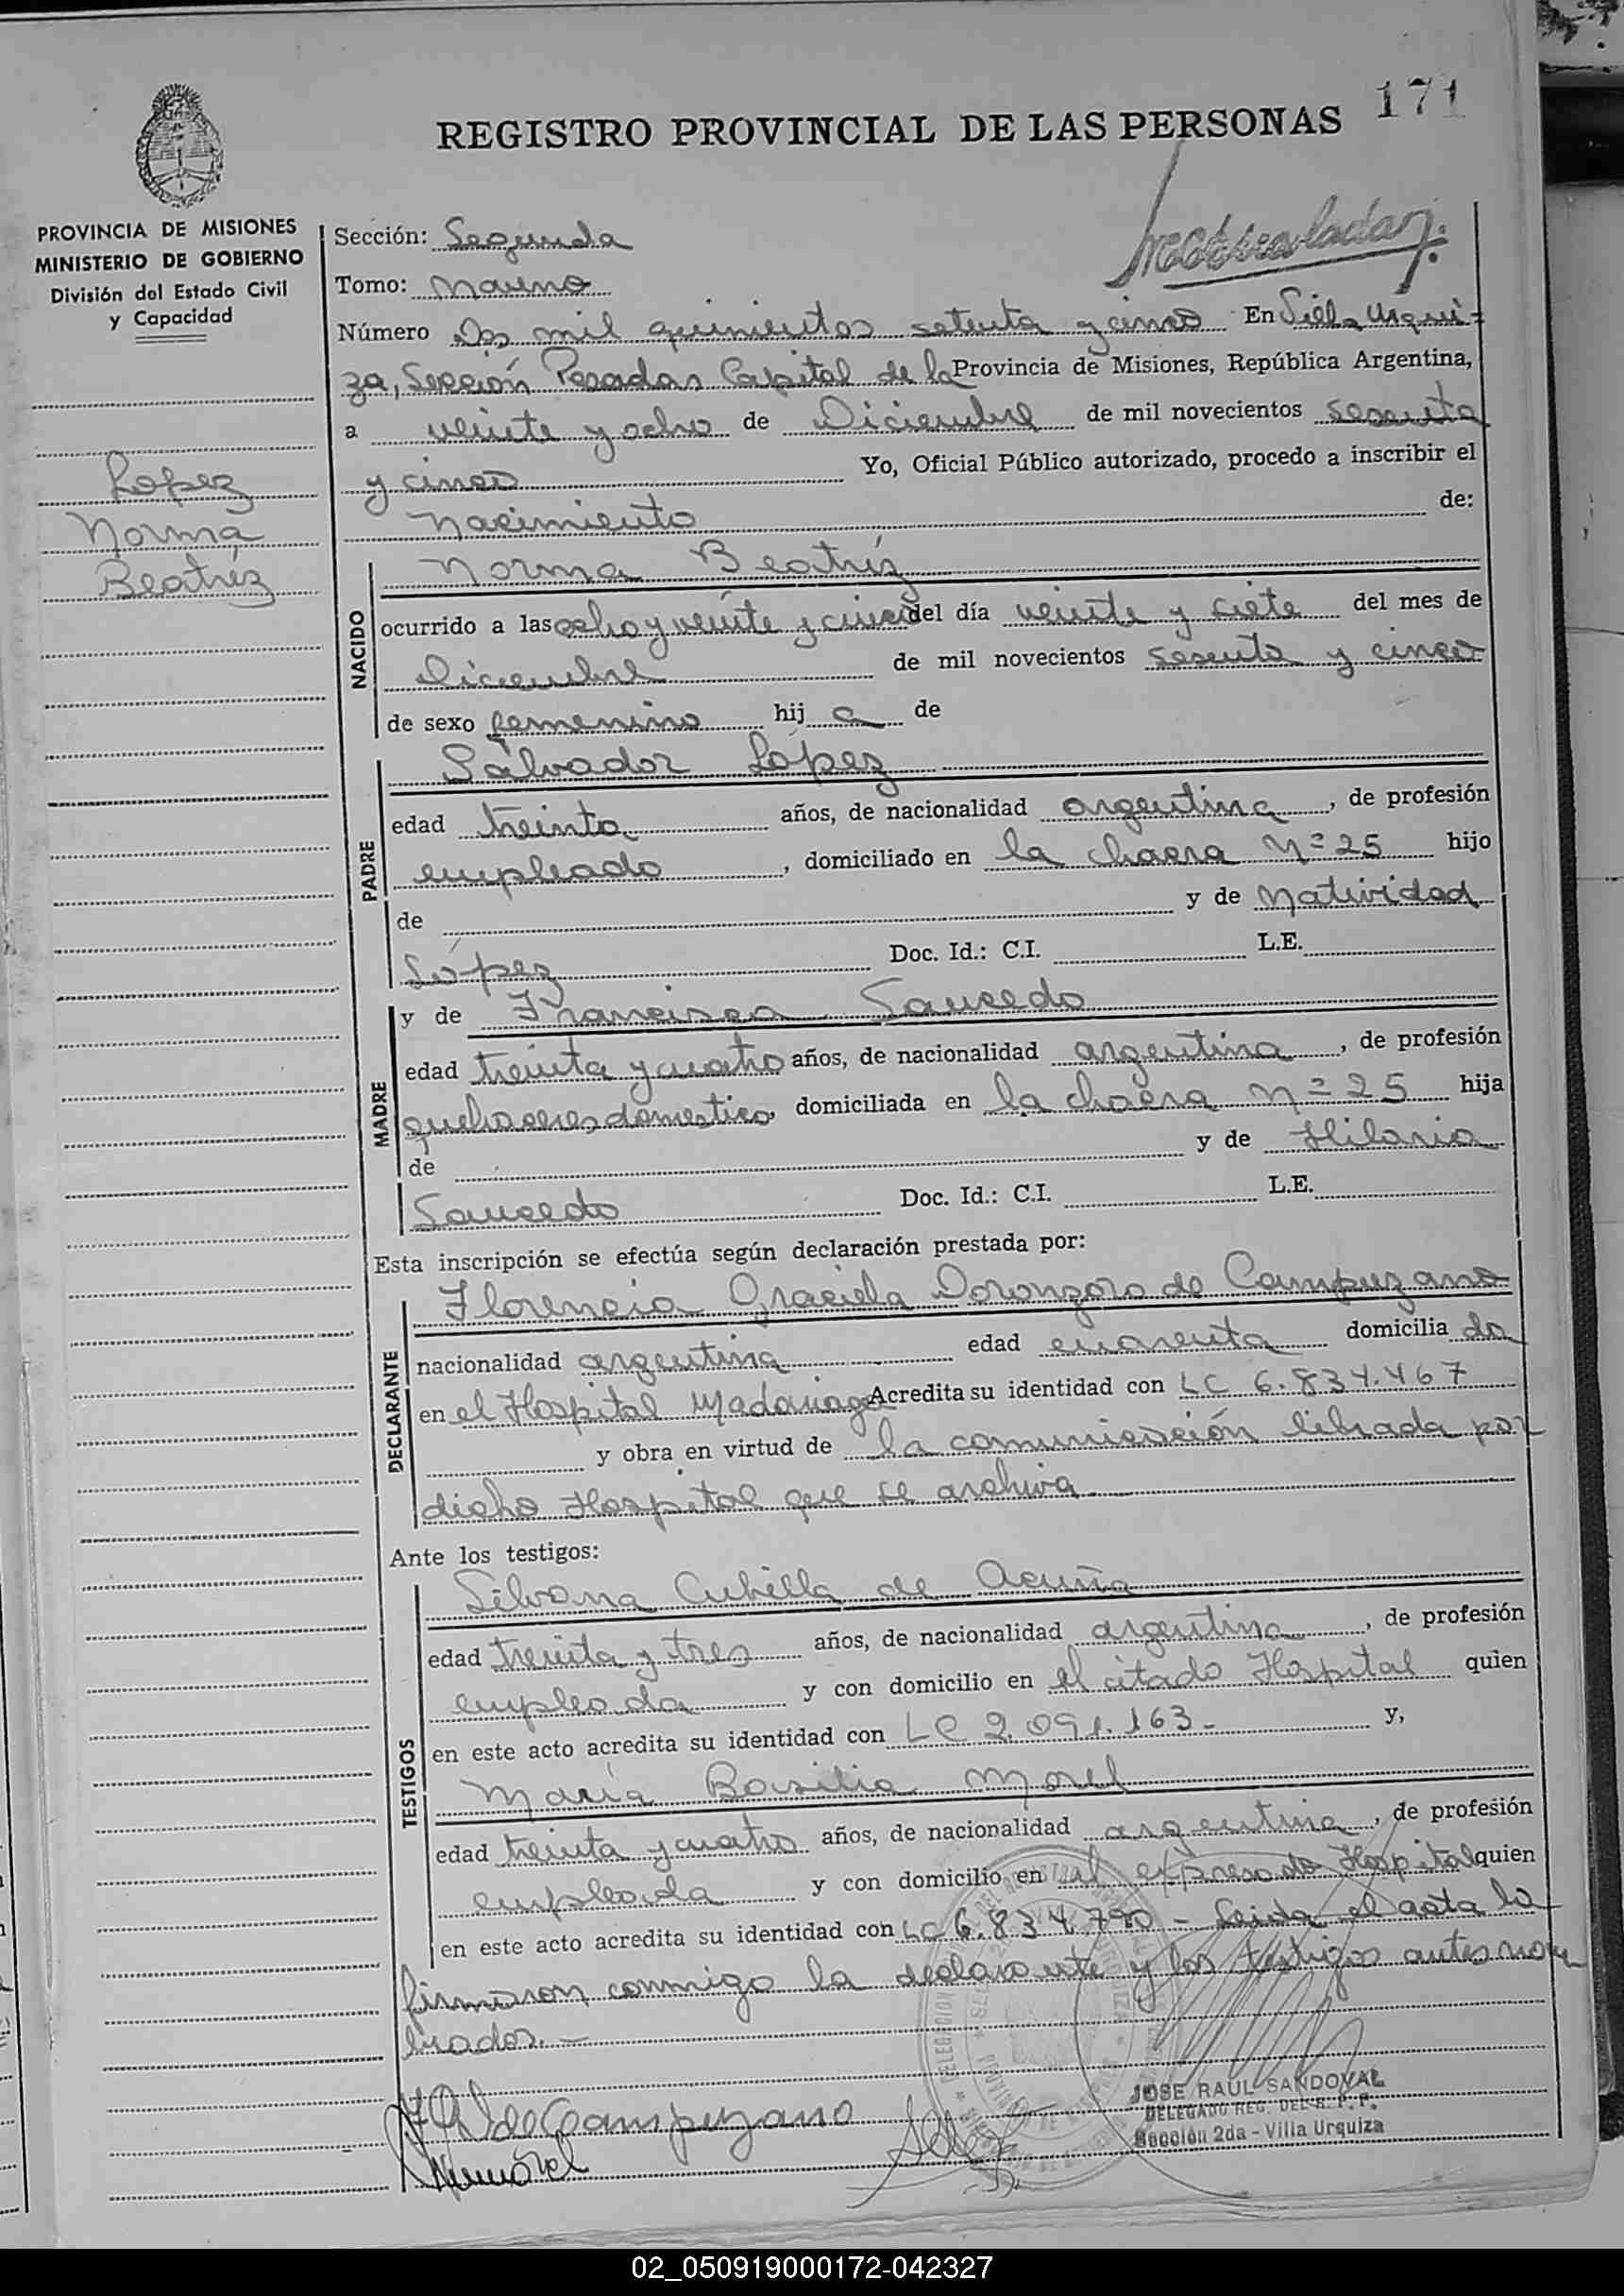 171
REGISTRO PROVINCIAL DE LAS PERSONAS
PROVINCIA DE MISIONES
MINISTERIO DE GOBIERNO
División del Estado Civil
y Capacidad
Lopez
Norma
Beatríz
Sección: Segunda
Tomo:
Número Dos mil quinientos setenta y cinco En Villa Urqui-
za, Sección Posadas Capital de la Provincia de Misiones, República Argentina,
a veinte y ocho de Diciembre de mil novecientos sesenta
y cinco Yo, Oficial Público autorizado, procedo a inscribir el
nacimiento de:
NACIDO
Norma Beatríz
ocurrido a las ocho y veinte y cinco del día veinte y siete del mes de
Diciembre de mil novecientos sesenta y cinco
de sexo femenino hij a de
PADRE
Salvador López
edad treinta años, de nacionalidad argentina, de profesión
empleado, domiciliado en la chacra Nº 25 hijo
de y de Natividad
López Doc. Id.: C.I. L.E.
MADRE
y de Francisca Saucedo
edad treinta y cuatro años, de nacionalidad argentina, de profesión
quehaceres domestico domiciliada en la chacra nº 25 hija
de y de Hilaria
Saucedo Doc. Id.: C.I. L.E.
Esta inscripción se efectúa según declaración prestada por:
DECLARANTE
Florencia Graciela Doronzoro de Campuzano
nacionalidad argentina edad cuarenta domicilia da
en el Hospital Madariaga Acredita su identidad con LC 6.834.467
y obra en virtud de la comunicación librada por
dicho Hospital que se archiva.
Ante los testigos:
TESTIGOS
Silvana Cubilla de Acuña
edad treinta y tres años, de nacionalidad argentina, de profesión
empleada y con domicilio en el citado Hospital quien
en este acto acredita su identidad con LC 2.091.163.- y,
María Basilia Morel
edad treinta y cuatro años, de nacionalidad argentina, de profesión
empleada y con domicilio en el expresado Hospital quien
en este acto acredita su identidad con LC 6.834.790 - Leida el acta la
firmaron conmigo la declarante y los testigos antes nom
brados.-
de Campuzano
JOSE RAUL SANDOVAL
DELEGADO REG. DEL R. P. P.
Sección 2da - Villa Urquiza
02_050919000172-042327